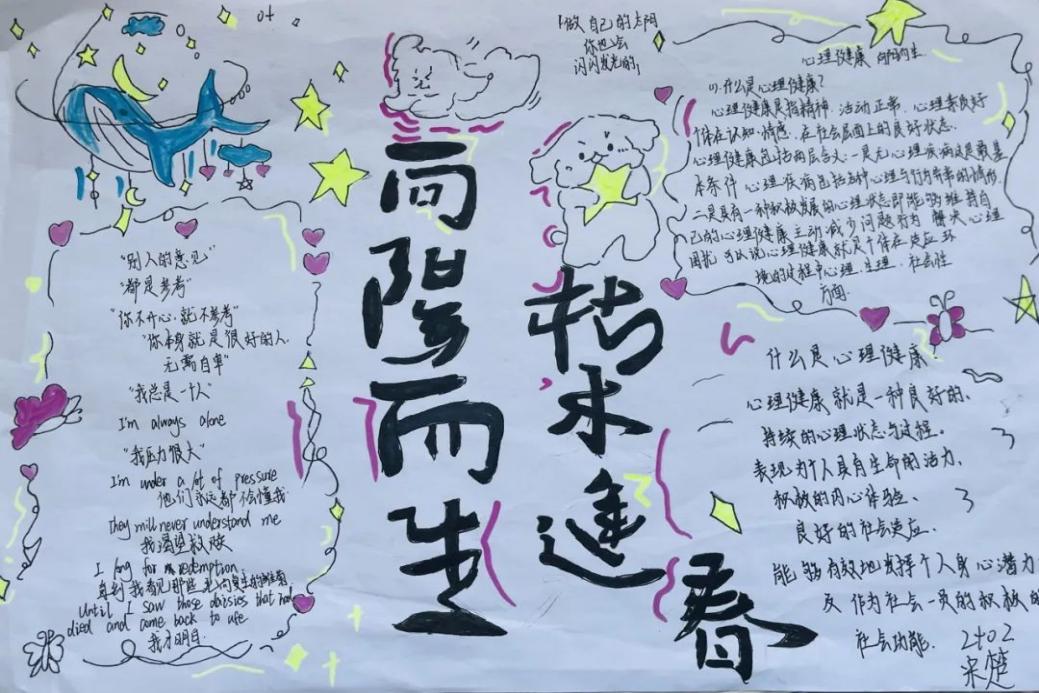 「做自己的太阳
你也会
闪闪发光的」
向陽而生
枯木逢春
"别人的意见"
"都是参考"
"你不开心,就不参考"
"你本身就是很好的人,
无需自卑"
"我总是一个人"
I'm always alone
"我压力很大"
I'm under a lot of pressure
他们永远都不懂我
they will never understand me
我渴望救赎
I long for redemption
直到我看见那些
Until I saw those that had
died and came back to
我才明白
心理健康 向阳而生
(1).什么是心理健康?
心理健康是指精神、活动正常、心理素质好
个体在认知、情感、在社会层面上的良好状态.
心理健康包括两层含义:一是无心理疾病这是最基
本条件 心理疾病包括各种心理与行为异常的情形.
二是具有一种积极发展的心理状态即能够维持自
己的心理健康主动减少问题行为 解决心理
困扰 可以说心理健康就是个体在适应环
境的过程中心理、生理、社会性
方面.
什么是心理健康?
心理健康就是一种良好的、
持续的心理状态与过程。
表现为个人具有生命的活力、
积极的内心体验、
良好的社会适应.
能够有效地发挥个人身心潜力
及作为社会一员的积极的
社会功能.
2402
宋楚